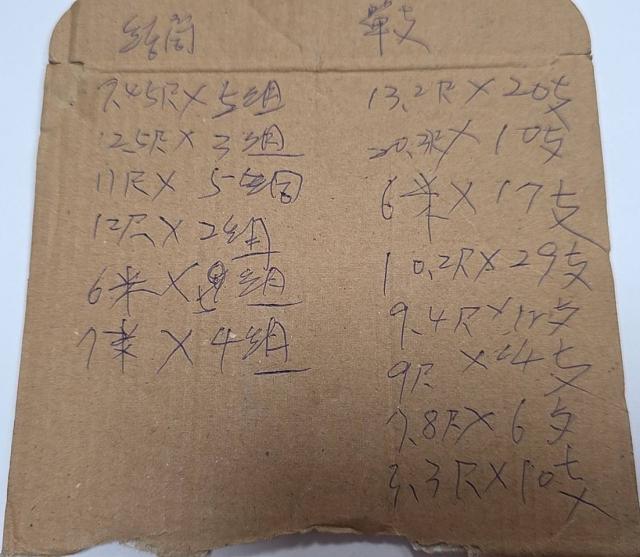 單支
7.45尺×5組
12.5尺×3組
11尺×5組
12尺×2組
6米× 組
7米×4組
13.2尺×20支
20.3尺×10支
6米×17支
10.2尺×29支
9.4尺×12支
9尺×4支
7.8尺×6支
3.3尺×10支